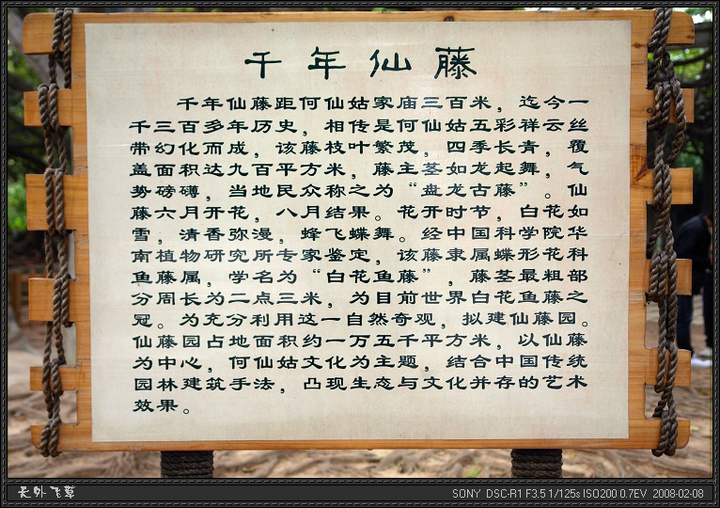 千年仙藤
千年仙藤距何仙姑家庙三百米，迄今一
千三百多年历史，相传是何仙姑五彩祥云丝
带幻化而成，该藤枝叶繁茂，四季长青，覆
盖面积达九百平方米，藤主茎如龙起舞，气
势磅礴，当地民众称之为“盘龙古藤”。仙
藤六月开花，八月结果。花开时节，白花如
雪，清香弥漫，蜂飞蝶舞。经中国科学院华
南植物研究所专家鉴定，该藤隶属蝶形花科
鱼藤属，学名为“白花鱼藤”，藤茎最粗部
分周长为二点三米，为目前世界白花鱼藤之
冠。为充分利用这一自然奇观，拟建仙藤园。
仙藤园占地面积约一万五千平方米，以仙藤
为中心，何仙姑文化为主题，结合中国传统
园林建筑手法，凸现生态与文化并存的艺术
效果。
天外飞草 SONY DSC-R1 F3.5 1/125s ISO200 0.7EV 2008-02-08